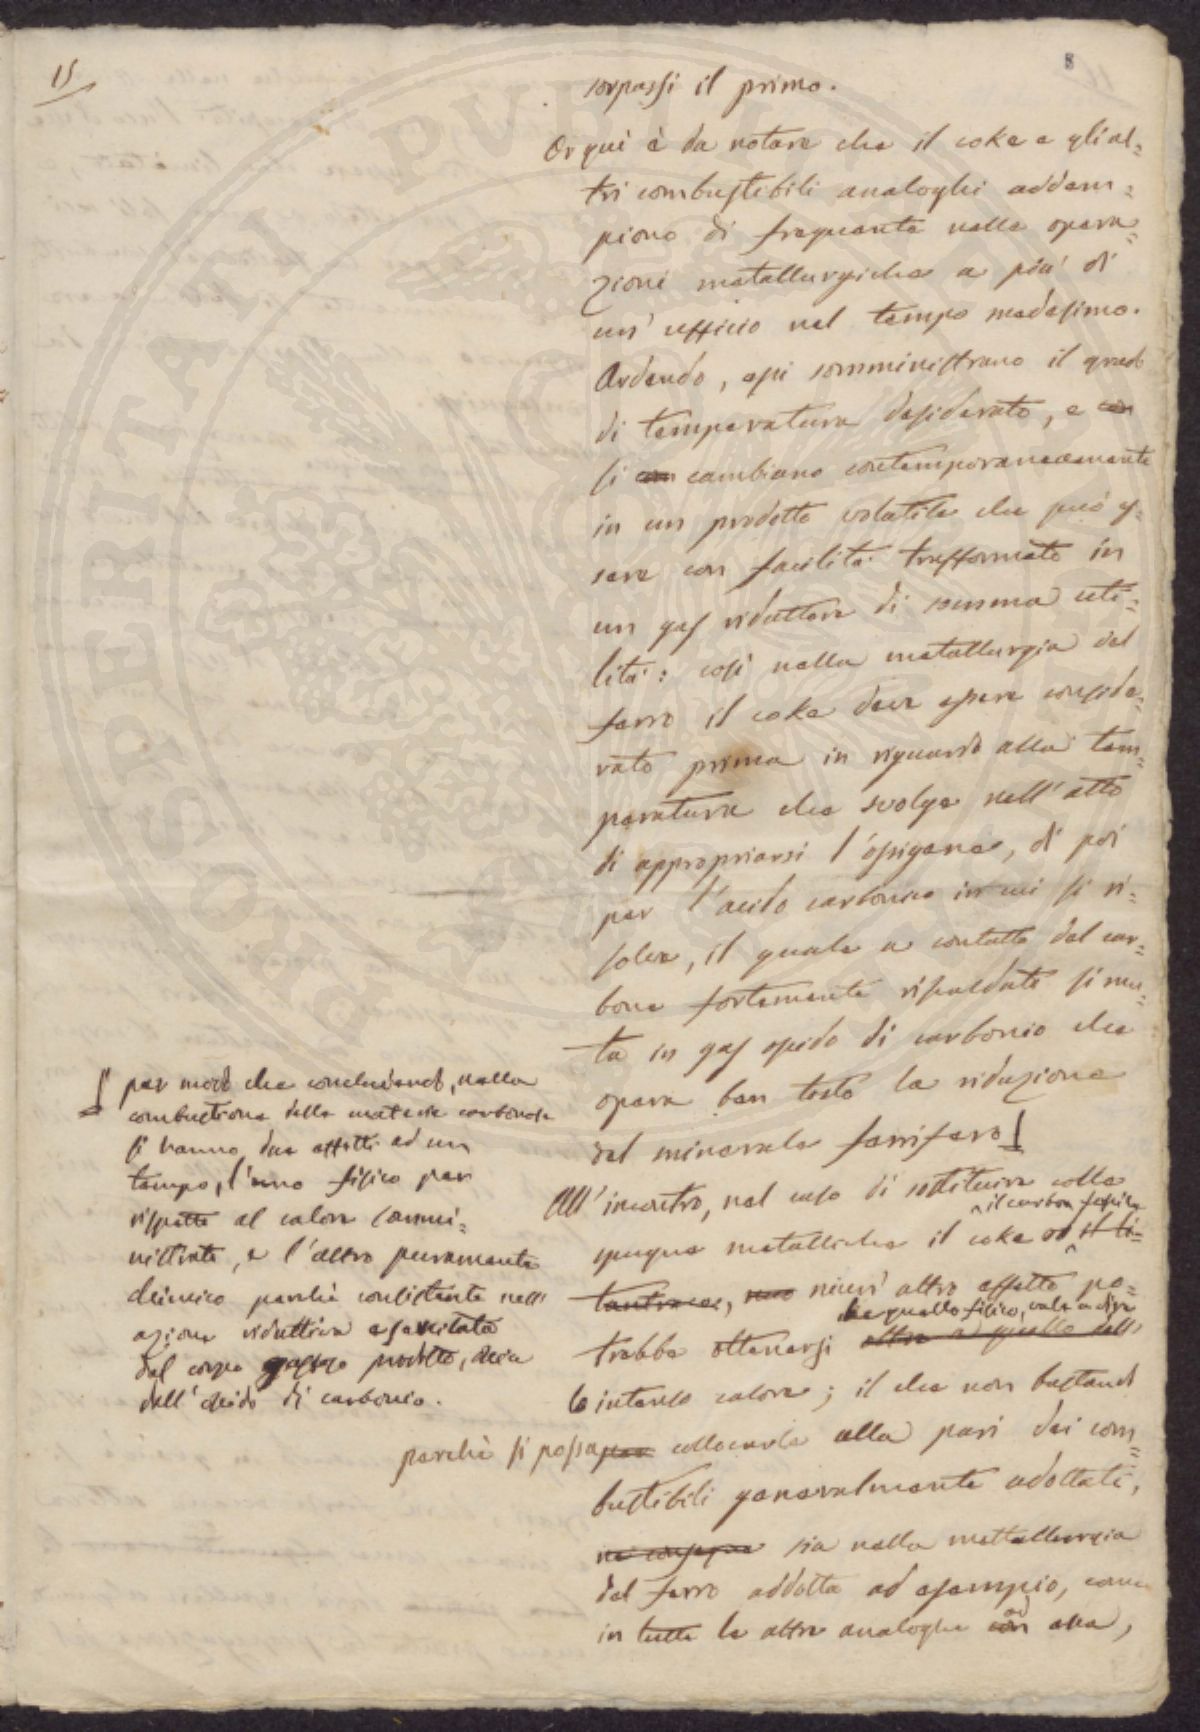 15
8
sorpassi il primo.
Or qui è da notare che il coke e gli al=
tri combustibili analoghi adem=
piono di frequente nelle opera=
zioni metallurgiche a più di
un' ufficio nel tempo medesimo.
Ardendo, essi somministrano il grado
di temperatura desiderato, e con
si con cambiano contemporaneamente
in un prodotto volatile che può es=
sere con facilità trasformato in
un gas riduttore di somma uti=
lità: così nella metallurgia del
ferro il coke deve essere conside=
rato prima in riguardo alla tem=
peratura che svolge nell'atto
di appropriarsi l'ossigene, di poi
per l'acido carbonico in cui si ri=
solve, il quale a contatto del car=
bone fortemente riscaldato si mu=
ta in gas ossido di carbonio che
opera ben tosto la riduzione
del minerale ferrifero
per modo che concludendo, nella
combustione delle materie carbonose
si hanno due effetti ad un
tempo, l'uno fisico per
rispetto al calore sommi=
nistrato, e l'altro puramente
chimico perchè consistente nell'
azione riduttiva esercitata
dal corpo gassoso prodotto, cioè
dall'ossido di carbonio.
All'incontro, nel caso di sostituire colle
il carbon fossile
spugne metalliche il coke od il li=
tantrace, niun' altro effetto po=
che quello fisico, vale a dire
trebbe ottenersi oltre a quello dell'
lo intenso calore; il che non bastando
perchè si possa per collocarle alla pari dei com=
bustibili generalmente adottati,
ne consegue sia nella mettallurgia
del ferro addotta ad esempio, come
in tutte le altre analoghe con ad essa,